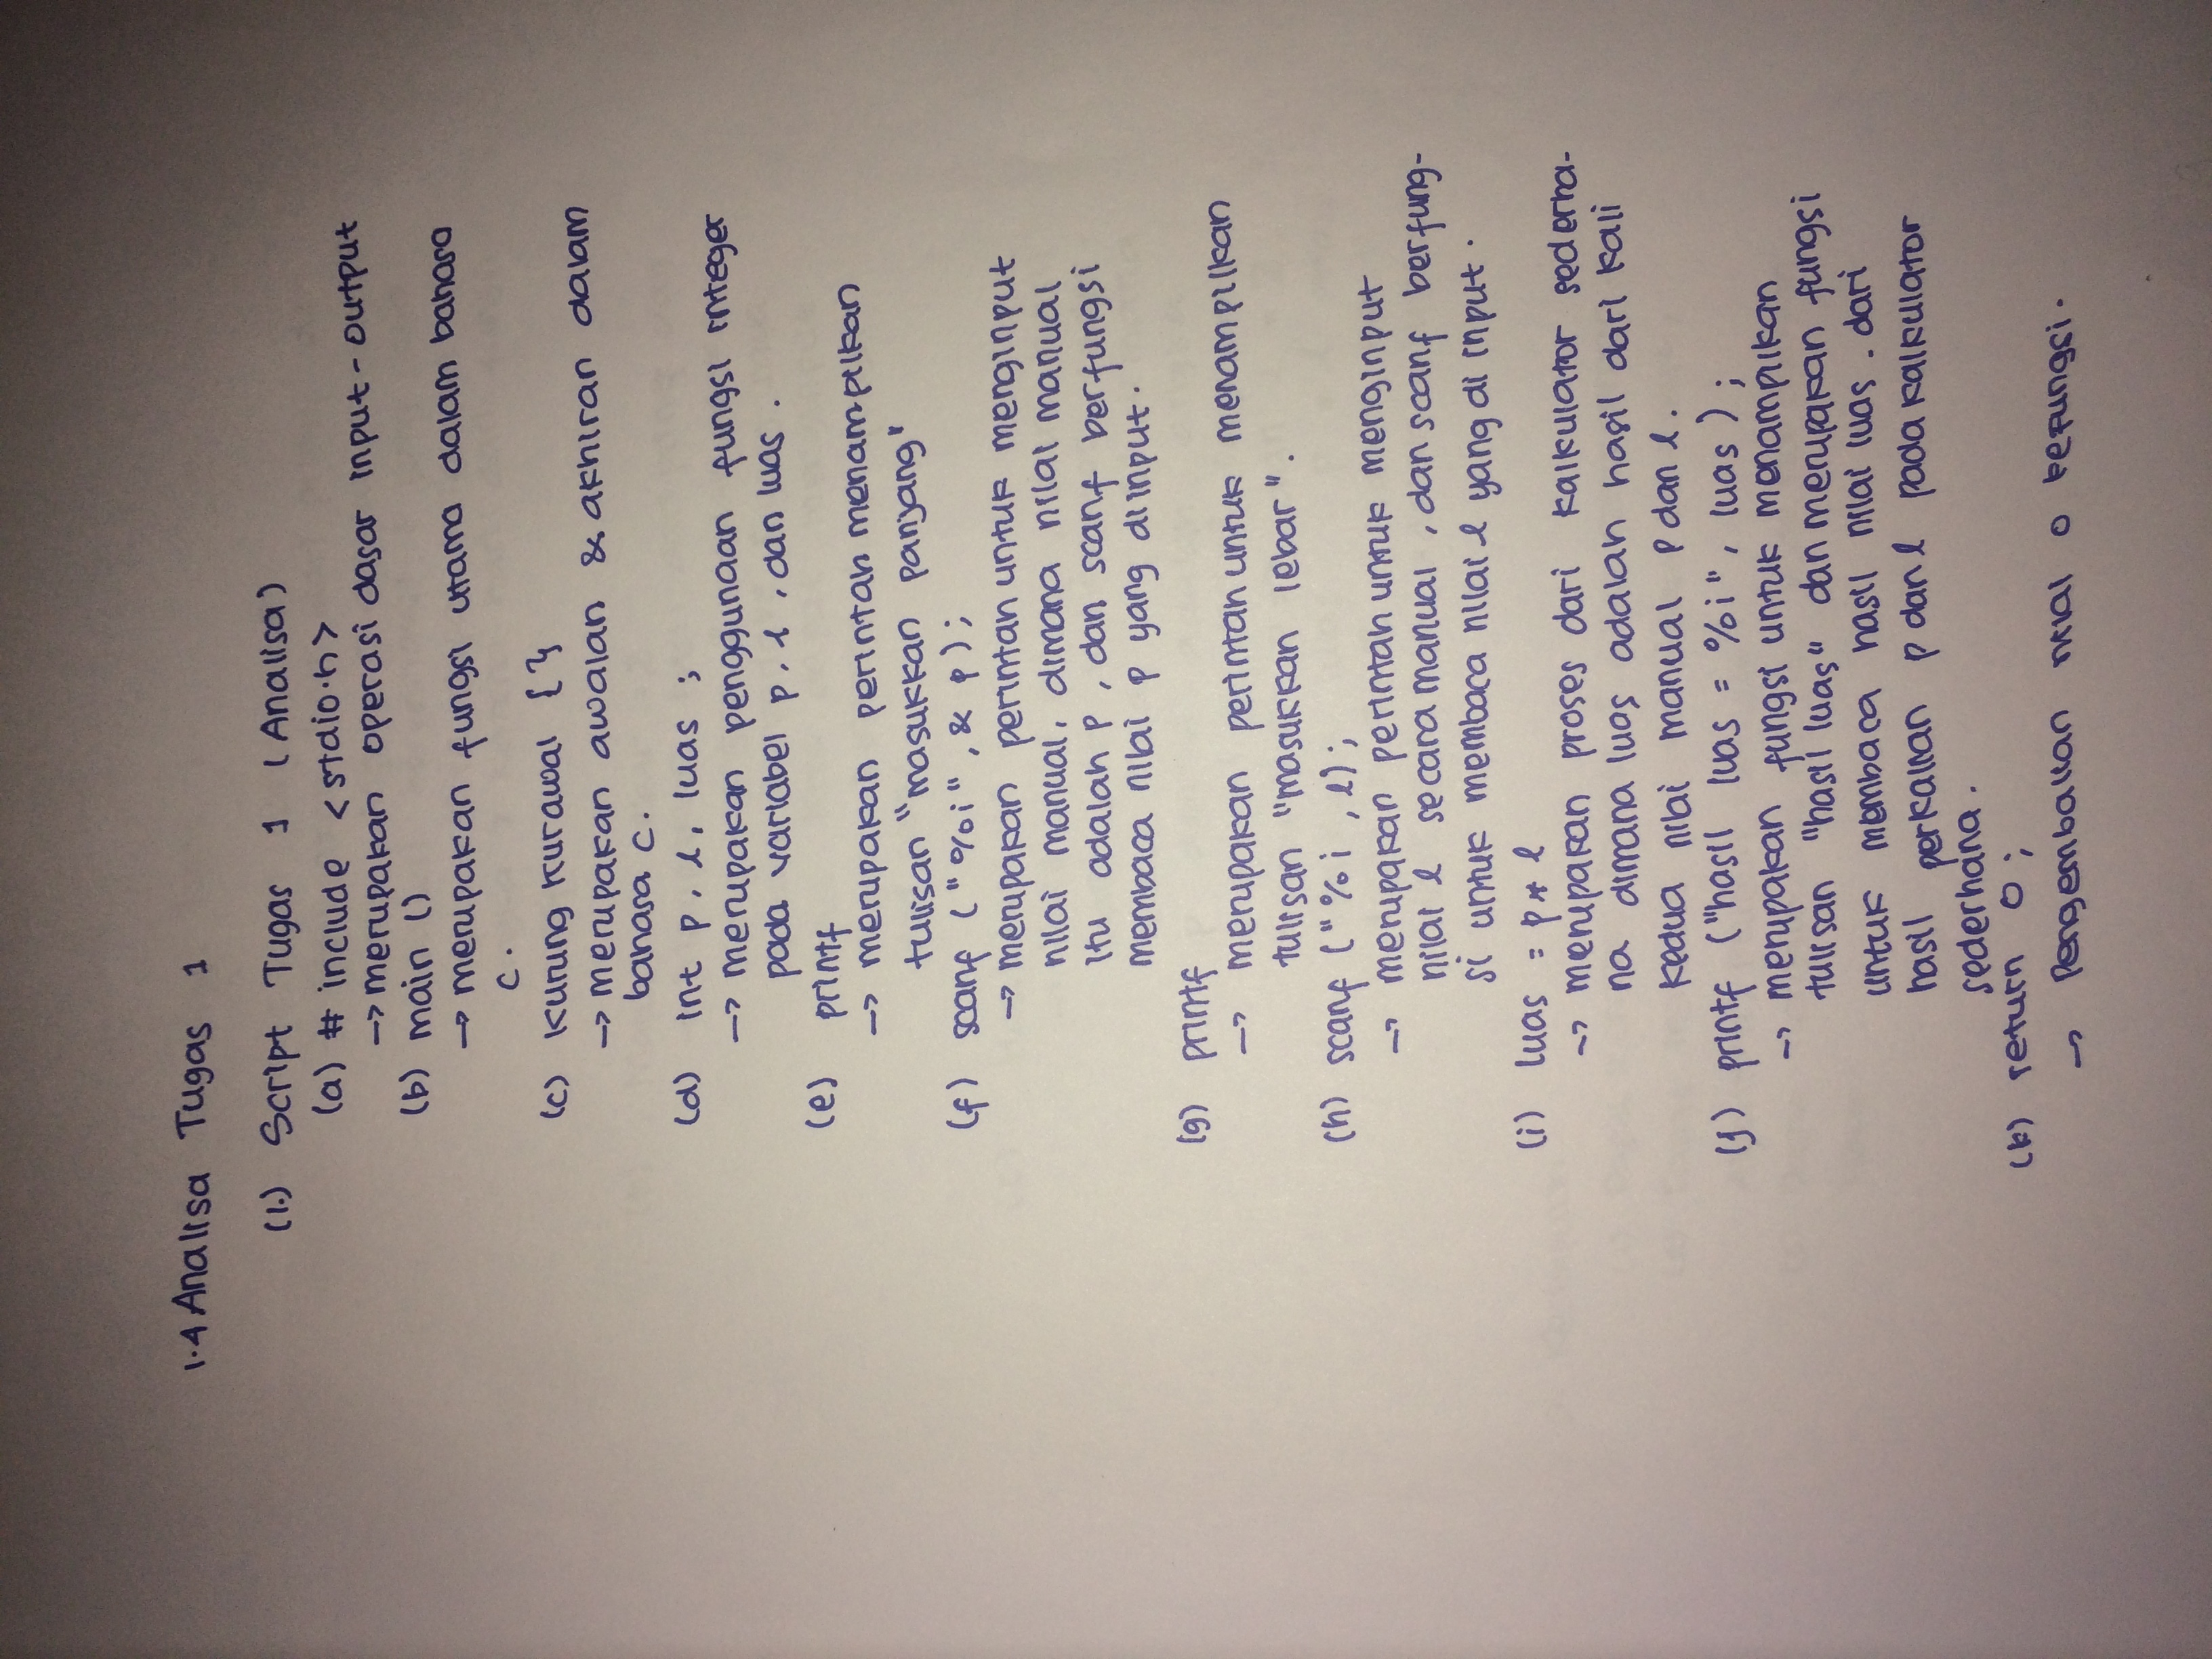 1.4 Analisa Tugas 1
(1.) Script Tugas 1 (Analisa)
(a) # include <stdio.h>
→ merupakan operasi dasar input-output
(b) main ()
→ merupakan fungsi utama dalam bahasa
C.
(c) Kurung kurawal { }
→ merupakan awalan & akhiran dalam
bahasa C.
(d) int p, l, luas ;
→ merupakan penggunaan fungsi integer
pada variabel p, l, dan luas.
(e) printf
→ merupakan perintah menampilkan
tulisan "masukkan panjang"
(f) scanf ("%i", & p);
→ merupakan perintah untuk menginput
nilai manual, dimana nilai manual
itu adalah p, dan scanf berfungsi
membaca nilai p yang diinput.
(g) printf
→ merupakan perintah untuk menampilkan
tulisan "masukkan lebar".
(h) scanf ("%i , l);
→ merupakan perintah untuk menginput
nilai l secara manual, dan scanf berfung-
si untuk membaca nilai l yang di input.
(i) luas = p * l
→ merupakan proses dari kalkulator sederha-
na dimana luas adalah hasil dari kali
kedua nilai manual p dan l.
(j) printf ("hasil luas = %i", luas);
→ merupakan fungsi untuk menampilkan
tulisan "hasil luas" dan merupakan fungsi
untuk membaca hasil nilai luas. dari
hasil perkalian p dan l pada kalkulator
sederhana.
(k) return 0 ;
→ Pengembalian nilai 0 kefungsi.